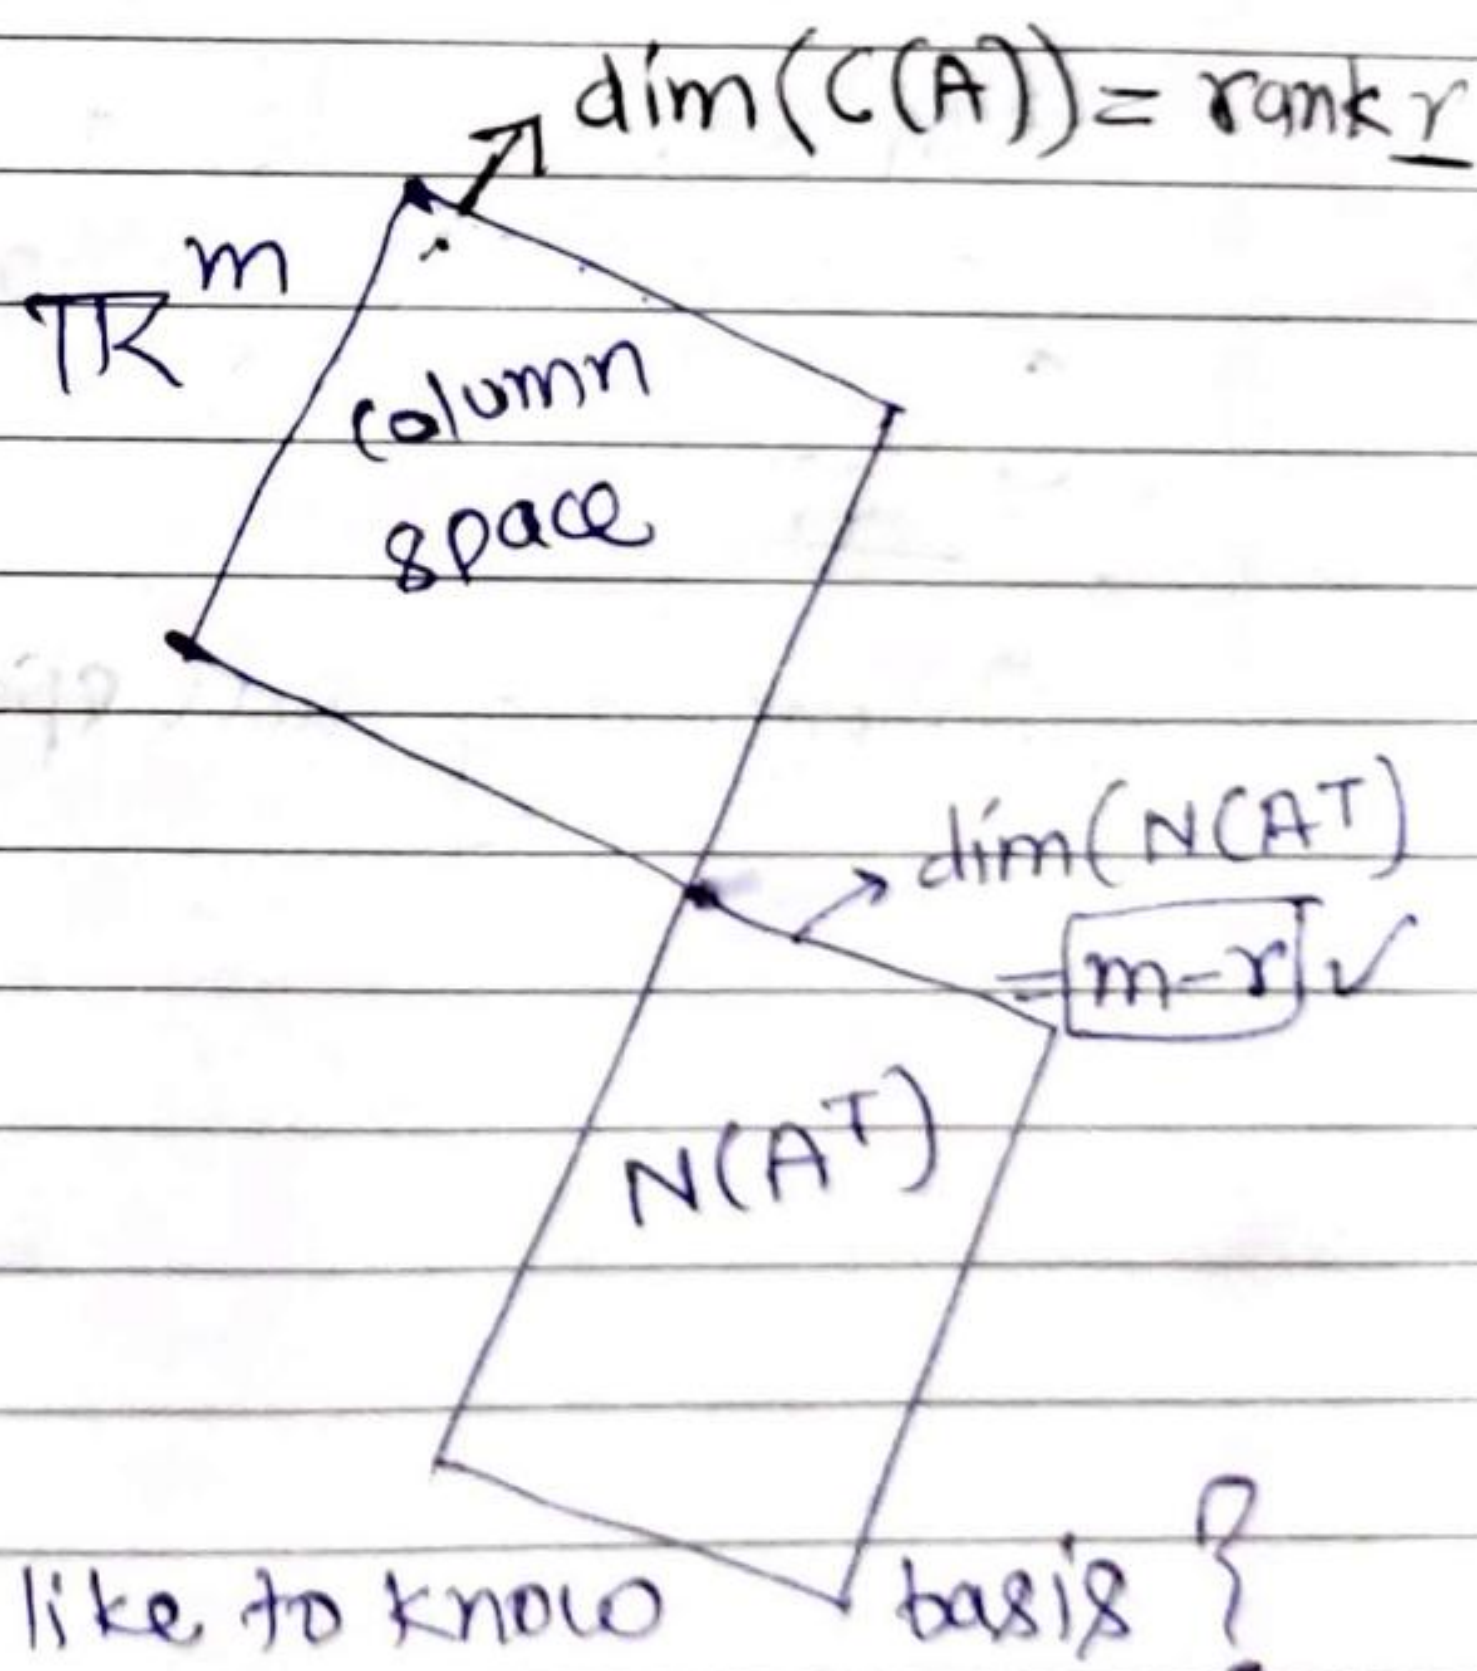 dim(C(A)) = rank r
ℝᵐ
column
space
dim(N(Aᵀ)
= m-r ✓
N(Aᵀ)
like to know basis }